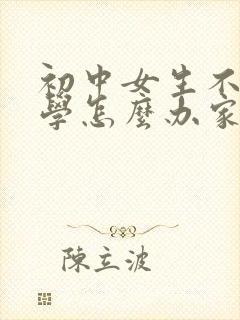 初中女生不
學怎麼办家
陳立波